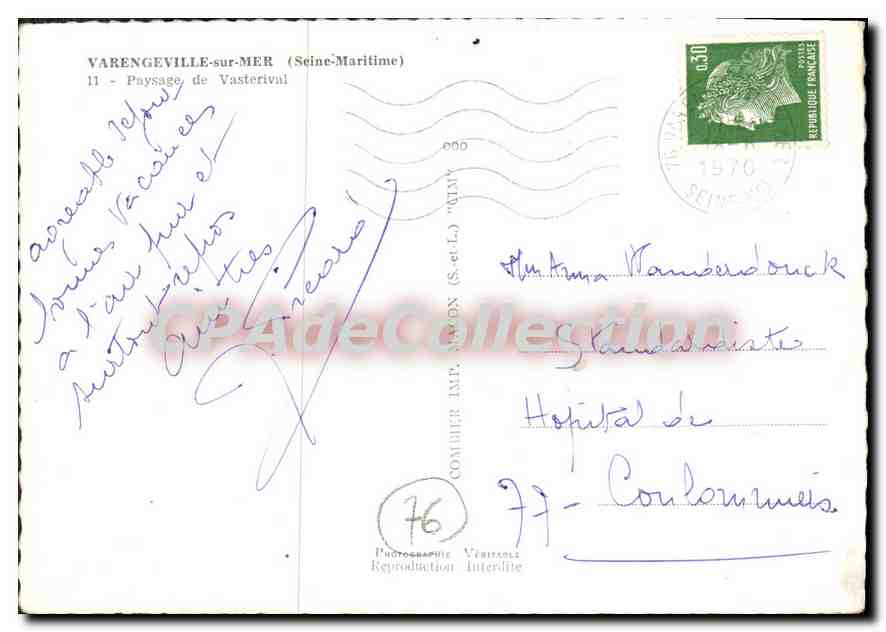 VARENGEVILLE-sur-MER (Seine-Maritime)
11 - Paysage de Vasterival
agréable séjour
bonnes vacances
à l'air pur et
surtout repos
Amitiés
0,30
POSTES
REPUBLIQUE FRANÇAISE
76
1970
SEINE
COMBIER IMP. MACON (S.-et-L.) "CIM"
Anna Vanderdonck
Standardiste
Hopital de
77 - Coulommiers
76
PHOTOGRAPHIE VÉRITABLE
Reproduction Interdite
CPAdeCollection